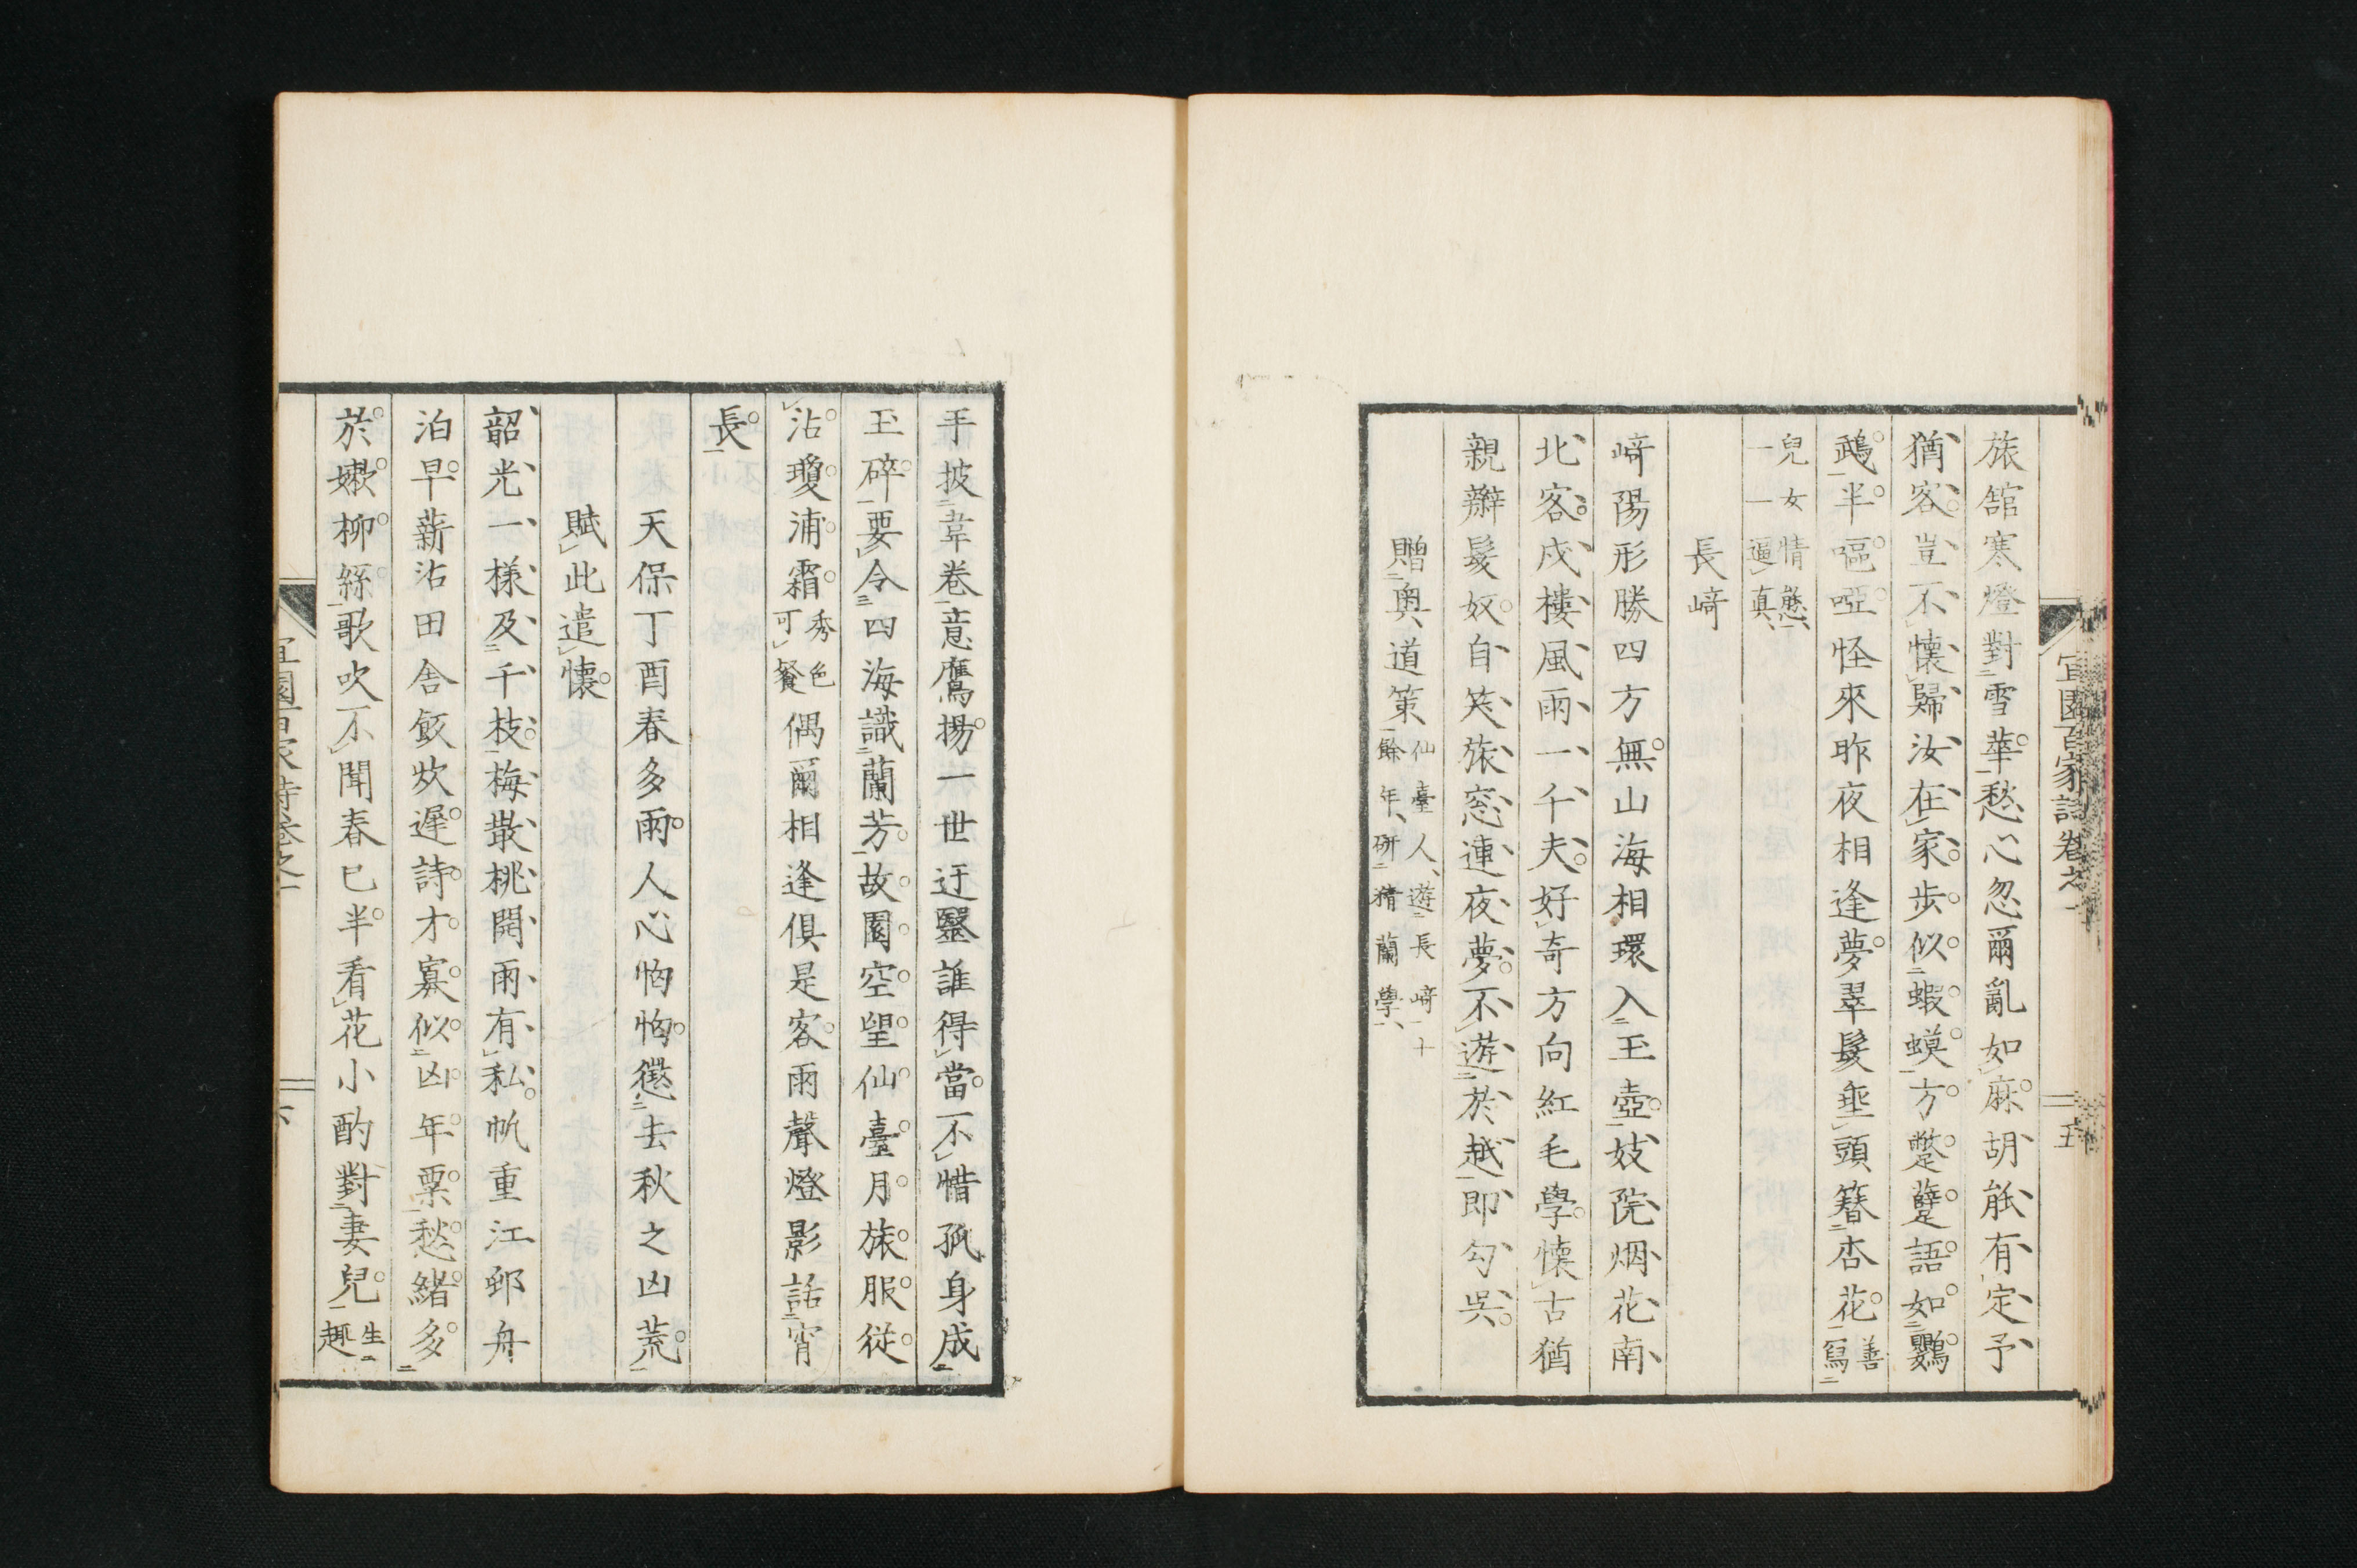 宜園百家詩卷之一
五
旅館寒燈對雪華愁心忽爾亂如麻胡能有定予
猶客豈不懷歸汝在家步似蝦蟆方蹩躠語如鸚
鵡半嘔啞怪來昨夜相逢夢翠髮垂頭簪杏花善寫
兒女情態一一逼真
長﨑
﨑陽形勝四方無山海相環入玉壺妓院烟花南
北客戍樓風雨一千夫好奇方向紅毛學懷古猶
親辮髮奴自笑旅窓連夜夢不遊於越即勾吳
贈奧道策仙臺人遊長﨑十餘年研精蘭學
手披韋卷意鷹揚一世迂毉誰得當不惜孤身成
玉碎要令四海識蘭芳故園空望仙臺月旅服從
沾瓊浦霜秀色可餐偶爾相逢俱是客雨聲燈影話宵
長
天保丁酉春多雨人心恟恟懲去秋之凶荒
賦此遣懷
韶光一樣及千枝梅散桃開雨有私帆重江郵舟
泊早薪沾田舍飯炊遲詩才寡似凶年粟愁緒多
於嫩柳絲歌吹不聞春已半看花小酌對妻兒生趣
宜園百家詩卷之一
六